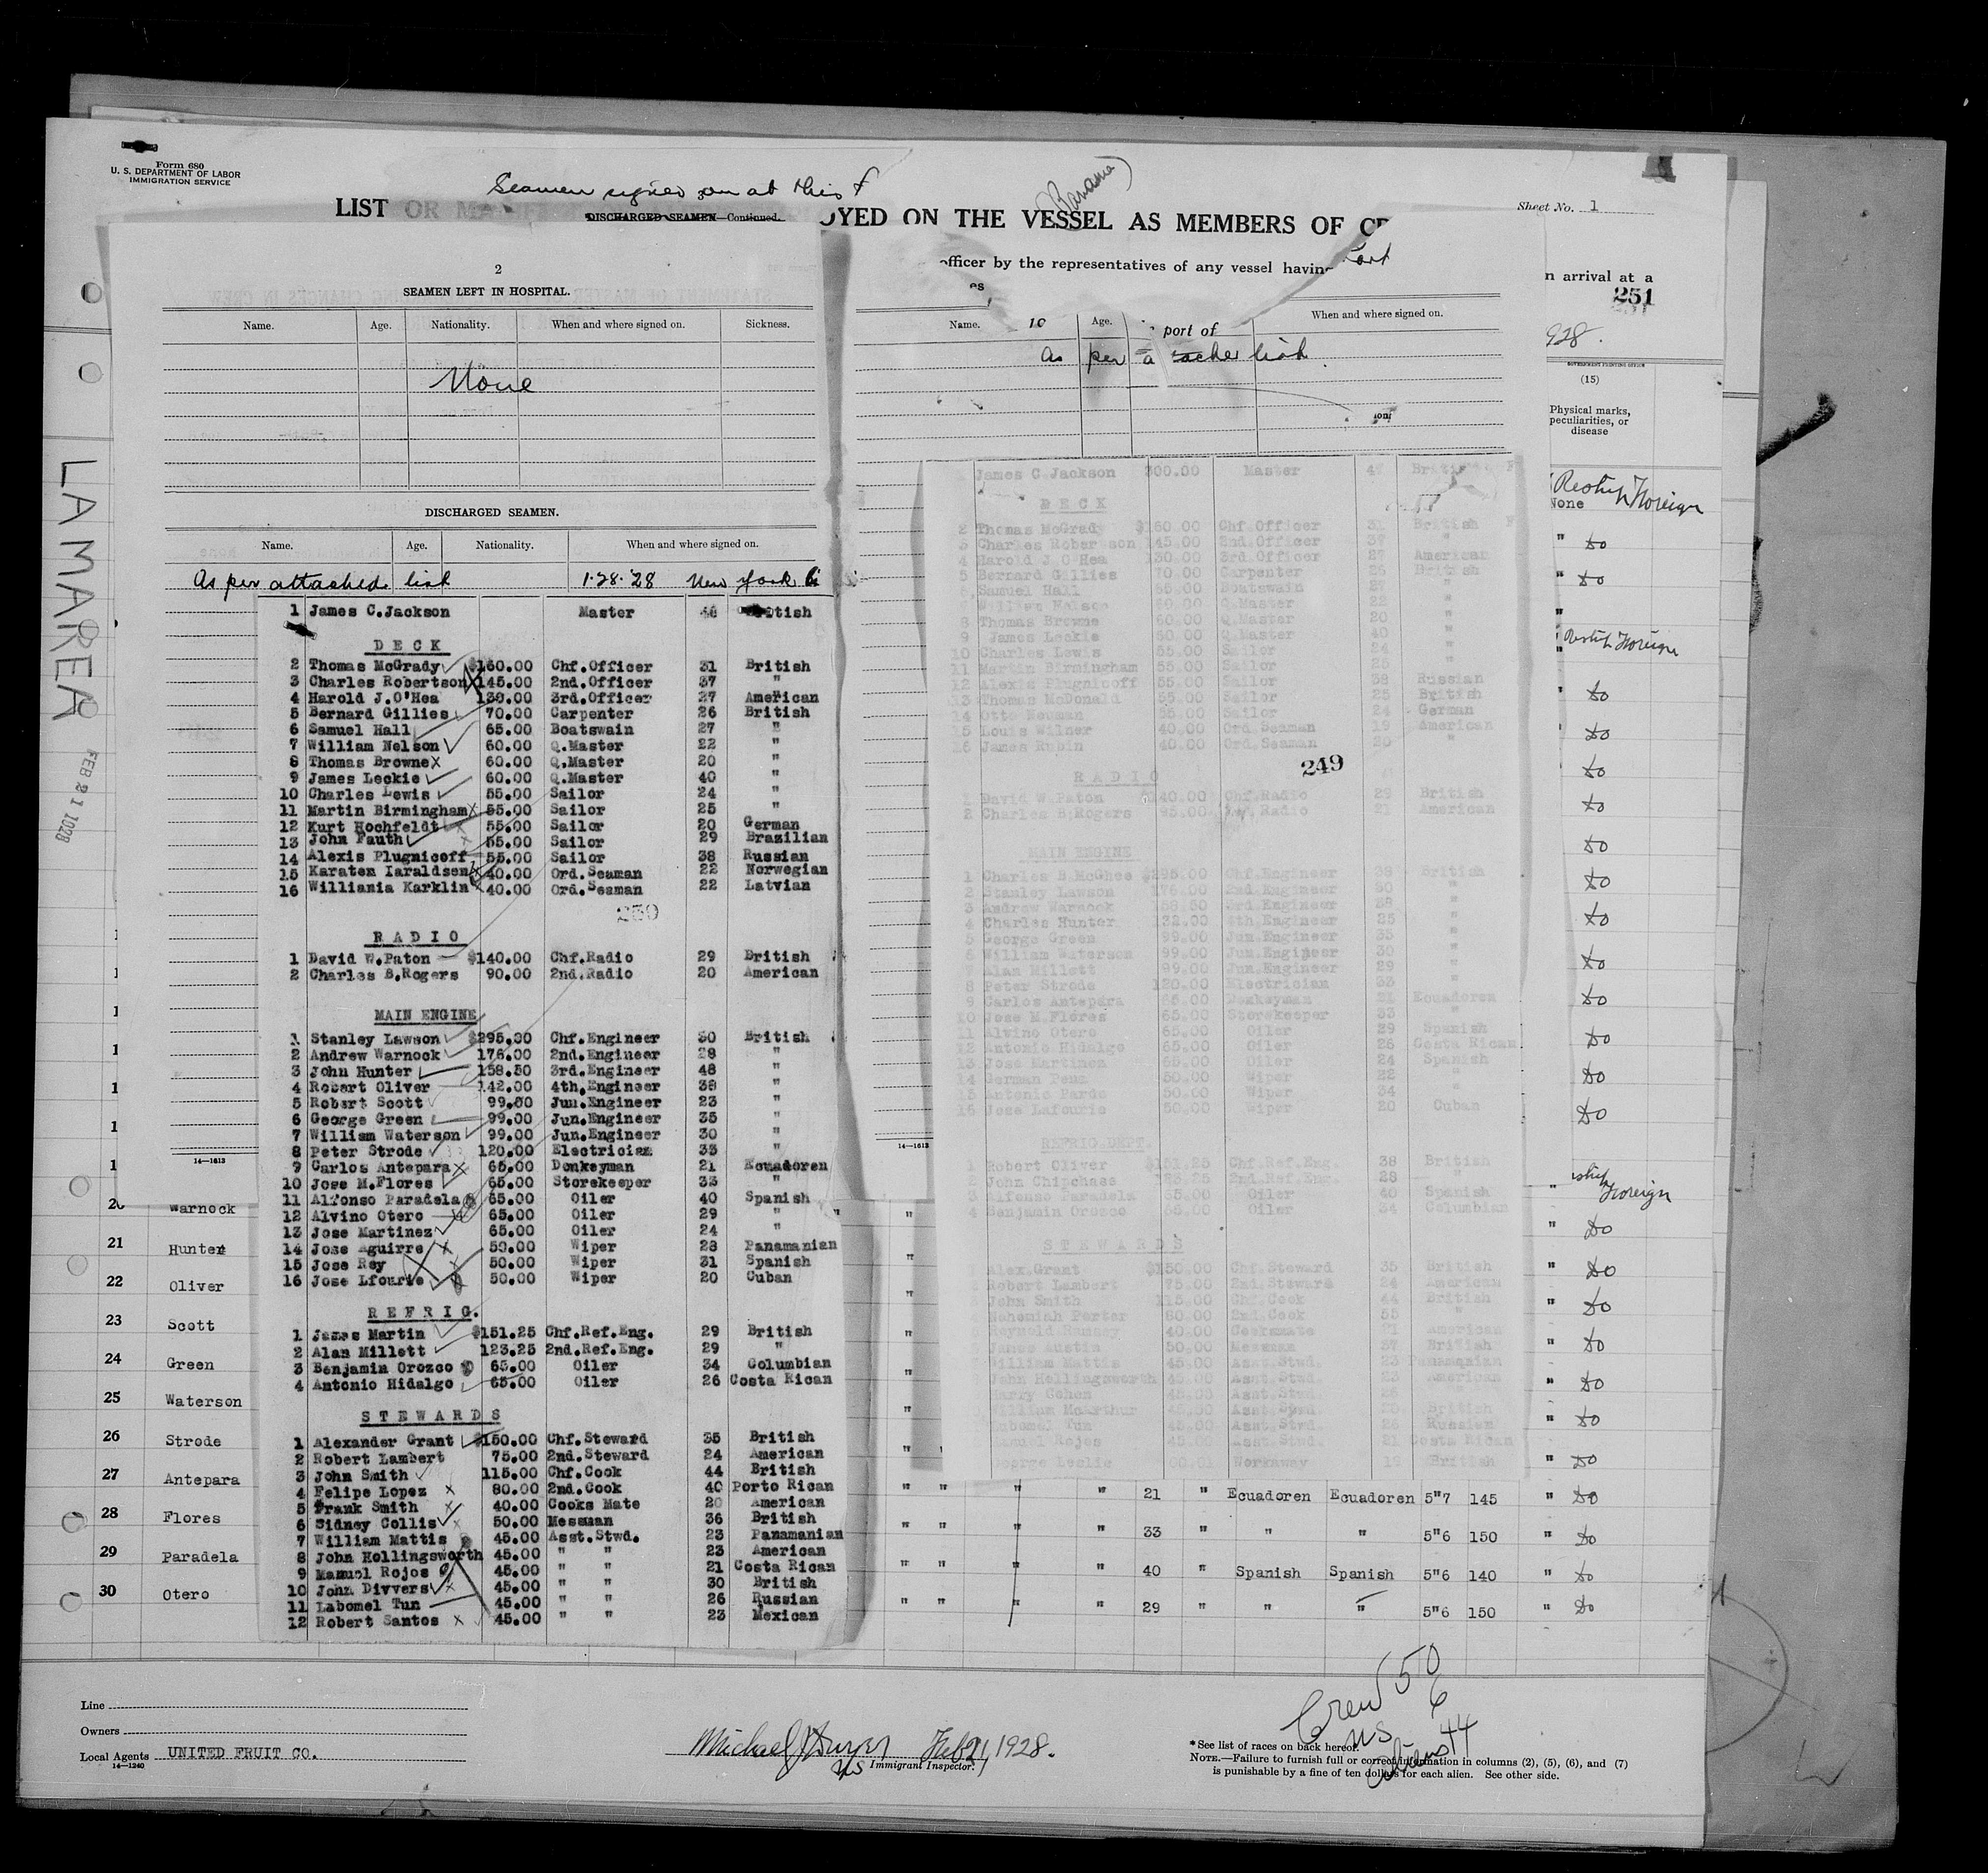 Form 680
U. S. DEPARTMENT OF LABOR
IMMIGRATION SERVICE
Seamen signed on at this
LIST OR
DISCHARGED SEAMEN—Continued.
OYED ON THE VESSEL AS MEMBERS OF
(Banana)
Sheet No. 1
officer by the representatives of any vessel having
n arrival at a
251
928.
2
SEAMEN LEFT IN HOSPITAL.
Name. Age. Nationality. When and where signed on. Sickness.
None
DISCHARGED SEAMEN.
Name. Age. Nationality. When and where signed on.
As per attached list 1·28·'28 New York
1 James C.Jackson Master British
DECK
2 Thomas McGrady $160.00 Chf.Officer 31 British
3 Charles Robertson 145.00 2nd.Officer 37 "
4 Harold J.O'Hea 130.00 3rd.Officer 27 American
5 Bernard Gillies 70.00 Carpenter 26 British
6 Samuel Hall 65.00 Boatswain 27 "
7 William Nelson 60.00 Q.Master 22 "
8 Thomas Browne 60.00 Q.Master 20 "
9 James Leckie 60.00 Q.Master 40 "
10 Charles Lewis 55.00 Sailor 24 "
11 Martin Birmingham 55.00 Sailor 25 "
12 Kurt Hochfeldt 55.00 Sailor 20 German
13 John Fauth 55.00 Sailor 29 Brazilian
14 Alexis Plugnicoff 55.00 Sailor 38 Russian
15 Karaten Iaraldsen 40.00 Ord.Seaman 22 Norwegian
16 Williania Karklin 40.00 Ord.Seaman 22 Latvian
250
RADIO
1 David W.Paton $140.00 Chf.Radio 29 British
2 Charles B.Rogers 90.00 2nd.Radio 20 American
MAIN ENGINE
1 Stanley Lawson $295.00 Chf.Engineer 30 British
2 Andrew Warnock 176.00 2nd.Engineer 28 "
3 John Hunter 158.50 3rd.Engineer 48 "
4 Robert Oliver 142.00 4th.Engineer 38 "
5 Robert Scott 99.00 Jun.Engineer 23 "
6 George Green 99.00 Jun.Engineer 35 "
7 William Waterson 99.00 Jun.Engineer 30 "
8 Peter Strode 120.00 Electrician 33 "
9 Carlos Antepara 65.00 Donkeyman 21 Ecuadoren
10 Jose M.Flores 65.00 Storekeeper 33 "
11 Alfonso Paradela 65.00 Oiler 40 Spanish
12 Alvino Otero 65.00 Oiler 29 "
13 Jose Martinez 65.00 Oiler 24 "
14 Jose Aguirre 50.00 Wiper 28 Panamanian
15 Jose Rey 50.00 Wiper 31 Spanish
16 Jose Lfourie 50.00 Wiper 20 Cuban
REFRIG.
1 James Martin $151.25 Chf.Ref.Eng. 29 British
2 Alan Millett 123.25 2nd.Ref.Eng. 29 "
3 Benjamin Orozco 65.00 Oiler 34 Columbian
4 Antonio Hidalgo 65.00 Oiler 26 Costa Rican
STEWARDS
1 Alexander Grant $150.00 Chf.Steward 35 British
2 Robert Lambert 75.00 2nd.Steward 24 American
3 John Smith 115.00 Chf.Cook 44 British
4 Felipe Lopez 80.00 2nd.Cook 40 Porto Rican
5 Frank Smith 40.00 Cooks Mate 20 American
6 Sidney Collis 50.00 Messman 36 British
7 William Mattis 45.00 Asst.Stwd. 23 Panamanian
8 John Hollingsworth 45.00 " " 23 American
9 Manuel Rojos 45.00 " " 21 Costa Rican
10 John Divvers 45.00 " " 30 British
11 Labomel Tun 45.00 " " 26 Russian
12 Robert Santos 45.00 " " 23 Mexican
Name. Age. When and where signed on.
port of
As per list
James C Jackson 300.00 Master 47
DECK
2 Thomas McGrady $160.00 Chf.Officer 31 British
3 Charles Robertson 145.00 2nd.Officer 37 "
4 Harold J.O'Hea 130.00 3rd.Officer 27 American
5 Bernard Gillies 70.00 Carpenter 26 British
Samuel Hall 65.00 Boatswain 27 "
William Nelson 60.00 Q.Master 22 "
8 Thomas Browne 60.00 Q.Master 20 "
9 James Leckie 60.00 Q.Master 40 "
10 Charles Lewis 55.00 Sailor 24 "
11 Martin Birmingham 55.00 Sailor 25 "
12 Alexis Plugnicoff 55.00 Sailor 38 Russian
13 Thomas McDonald 55.00 Sailor 25 British
14 Otto Neuman 55.00 Sailor 24 German
15 Louis Wilner 40.00 Ord.Seaman 19 American
16 James Rubin 40.00 Ord.Seaman 20 "
249
RADIO
1 David W.Paton $140.00 Chf.Radio 29 British
2 Charles B.Rogers Radio 21 American
MAIN ENGINE
1 Charles B.McGhee $295.00 Chf.Engineer 38 British
2 Stanley Lawson 176.00 2nd.Engineer 30 "
3 Andrew Warnock 158.50 3rd.Engineer 28 "
4 Charles Hunter 132.00 4th.Engineer 25 "
5 George Green 99.00 Jun.Engineer 35 "
6 William Waterson 99.00 Jun.Engineer 30 "
7 Alan Millett 99.00 Jun.Engineer 29 "
8 Peter Strode 120.00 Electrician 33 "
9 Carlos Antepara 65.00 Donkeyman 21 Ecuadoren
10 Jose M.Flores 65.00 Storekeeper 33 "
11 Alvino Otero 65.00 Oiler 29 Spanish
12 Antonio Hidalgo 65.00 Oiler 26 Costa Rican
13 Jose Martinez 65.00 Oiler 24 Spanish
14 German Pena 50.00 Wiper 22 "
15 Antonio Pardo 50.00 Wiper 34 "
16 Jose Lafourie 50.00 Wiper 20 Cuban
REFRIG DEPT.
1 Robert Oliver $151.25 Chf.Ref.Eng. 38 British
2 John Chipchase 2nd.Ref.Eng. 28 "
3 Alfonso Paradela 65.00 Oiler 40 Spanish
4 Benjamin Orozco 65.00 Oiler 34 Columbian
STEWARDS
Alex.Grant $150.00 Chf.Steward 35 British
Robert Lambert 75.00 2nd.Steward 24 American
John Smith 115.00 Chf.Cook 44 British
Nehemiah Porter 80.00 2nd.Cook 55 "
Reynold 40.00 Cooksmate 21 American
James Austin 50.00 Messman 37 British
William Mattis 45.00 Asst.Stwd. 23 Panamanian
John Hollingsworth 45.00 Asst.Stwd. 23 American
Harry Cohen 45.00 Asst.Stwd. 26 "
William 45.00 Asst.Stwd. British
Labomel Tun 45.00 Asst.Stwd. 26 Russian
Rojos 45.00 Asst.Stwd. 21 Costa Rican
George Leslie Workaway 19 British
(15)
Physical marks,
peculiarities, or
disease
None
Foreign
" Do
" Do
Foreign
Do
Foreign
LAMAREA
FEB 21 1928
14—1613
14—1613
20 Warnock
21 Hunter
22 Oliver
23 Scott
24 Green
25 Waterson
26 Strode
27 Antepara " " " " 21 " Ecuadoren Ecuadoren 5"7 145 " Do
28 Flores " " " " 33 " " " 5"6 150 " Do
29 Paradela " " " " 40 " Spanish Spanish 5"6 140 " Do
30 Otero " " " " 29 " " " 5"6 150 " Do
Line
Owners
Local Agents UNITED FRUIT CO.
14—1240
Michael J Dwyer Feb 21, 1928.
US Immigrant Inspector.
Crew 50
US 6
Aliens 44
* See list of races on back hereof.
NOTE.—Failure to furnish full or correct information in columns (2), (5), (6), and (7)
is punishable by a fine of ten dollars for each alien. See other side.